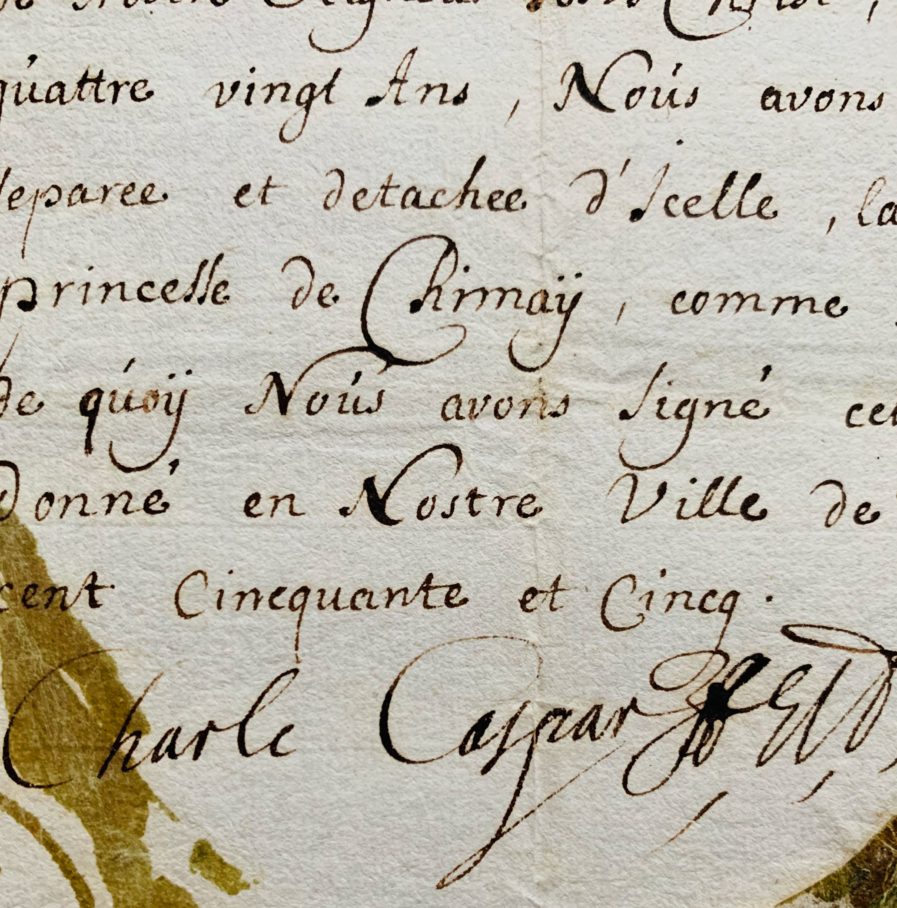 Nostre Seigneur
quattre vingt Ans, Nous avons
separee et detachee d'Icelle, la
princesse de Chimaÿ, comme
de quoÿ Nous avons signé cet
Donné en Nostre Ville de
cent Cincquante et Cincq.
Charle Caspar